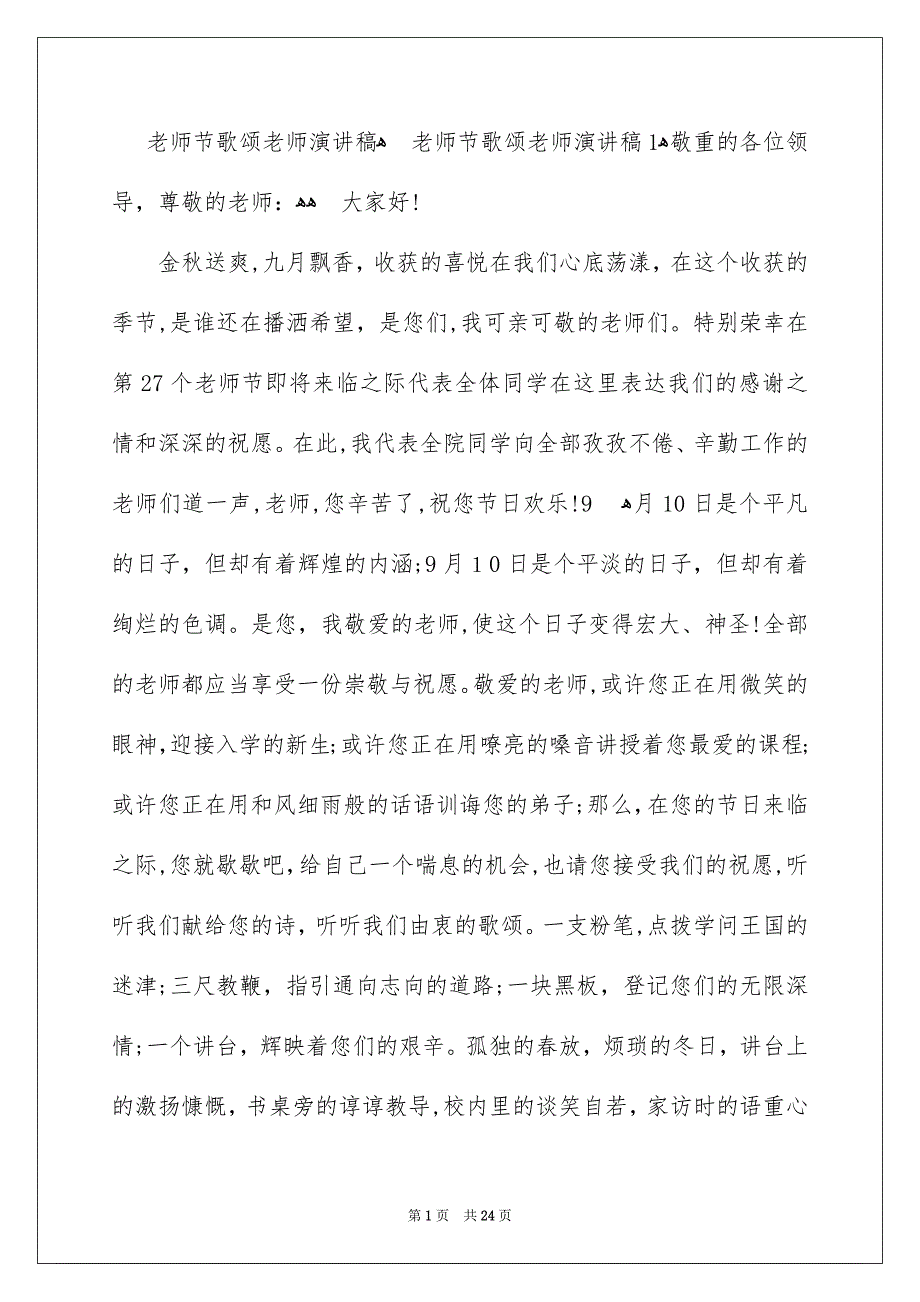 老师节歌颂老师演讲稿ﻩ 老师节歌颂老师演讲稿1ﻩ敬重的各位领
导，尊敬的老师：ﻩﻩ 大家好!
金秋送爽,九月飘香，收获的喜悦在我们心底荡漾，在这个收获的
季节,是谁还在播洒希望，是您们,我可亲可敬的老师们。特别荣幸在
第27个老师节即将来临之际代表全体同学在这里表达我们的感谢之
情和深深的祝愿。在此,我代表全院同学向全部孜孜不倦、辛勤工作的
老师们道一声,老师,您辛苦了,祝您节日欢乐!9 ﻩ月10日是个平凡
的日子，但却有着辉煌的内涵;9月10日是个平淡的日子，但却有着
绚烂的色调。是您，我敬爱的老师,使这个日子变得宏大、神圣!全部
的老师都应当享受一份崇敬与祝愿。敬爱的老师,或许您正在用微笑的
眼神,迎接入学的新生;或许您正在用嘹亮的嗓音讲授着您最爱的课程;
或许您正在用和风细雨般的话语训诲您的弟子;那么，在您的节日来临
之际,您就歇歇吧，给自己一个喘息的机会,也请您接受我们的祝愿,听
听我们献给您的诗，听听我们由衷的歌颂。一支粉笔,点拨学问王国的
迷津;三尺教鞭，指引通向志向的道路;一块黑板，登记您们的无限深
情;一个讲台，辉映着您们的艰辛。孤独的春放，烦琐的冬日，讲台上
的激扬慷慨，书桌旁的谆谆教导,校内里的谈笑自若，家访时的语重心
第1页 共24页